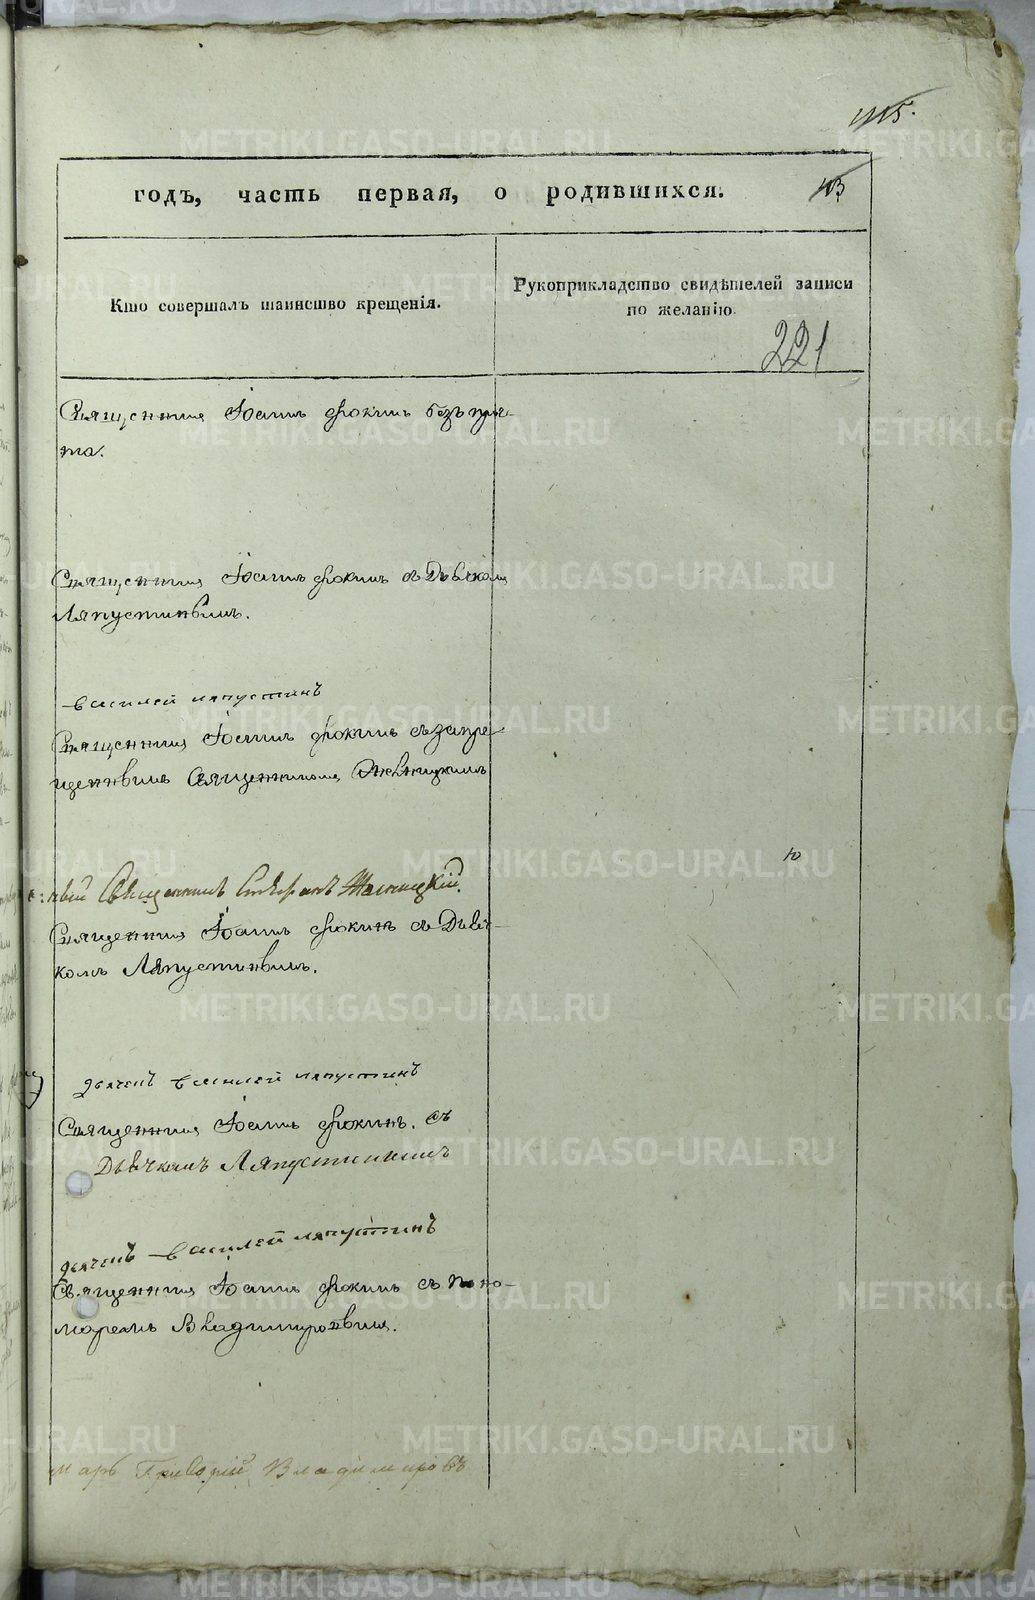 1115.
годъ, часть первая, о родившихся.
113
Кто совершалъ таинство крещенія.
Рукоприкладство свидѣтелей записи
по желанію.
221
Священникъ Іоаннъ Фокинъ безъ при-
та.
Священникъ Іоаннъ Фокинъ съ Дьячкомъ
Ляпустинымъ.
Василей Ляпустинъ
Священникъ Іоаннъ Фокинъ съ запре-
щеннымъ Священникомъ
Священникъ Стефанъ
Священникъ Іоаннъ Фокинъ съ Дьяч-
комъ Ляпустинымъ.
дьячекъ Василей Ляпустинъ
Священникъ Іоаннъ Фокинъ. съ
Дьячкомъ Ляпустинымъ
дьячекъ Василей Ляпустинъ
Священникъ Іоаннъ Фокинъ съ поно-
маремъ Владимировымъ.
марь Григорій Владимировъ
METRIKI.GASO-URAL.RU